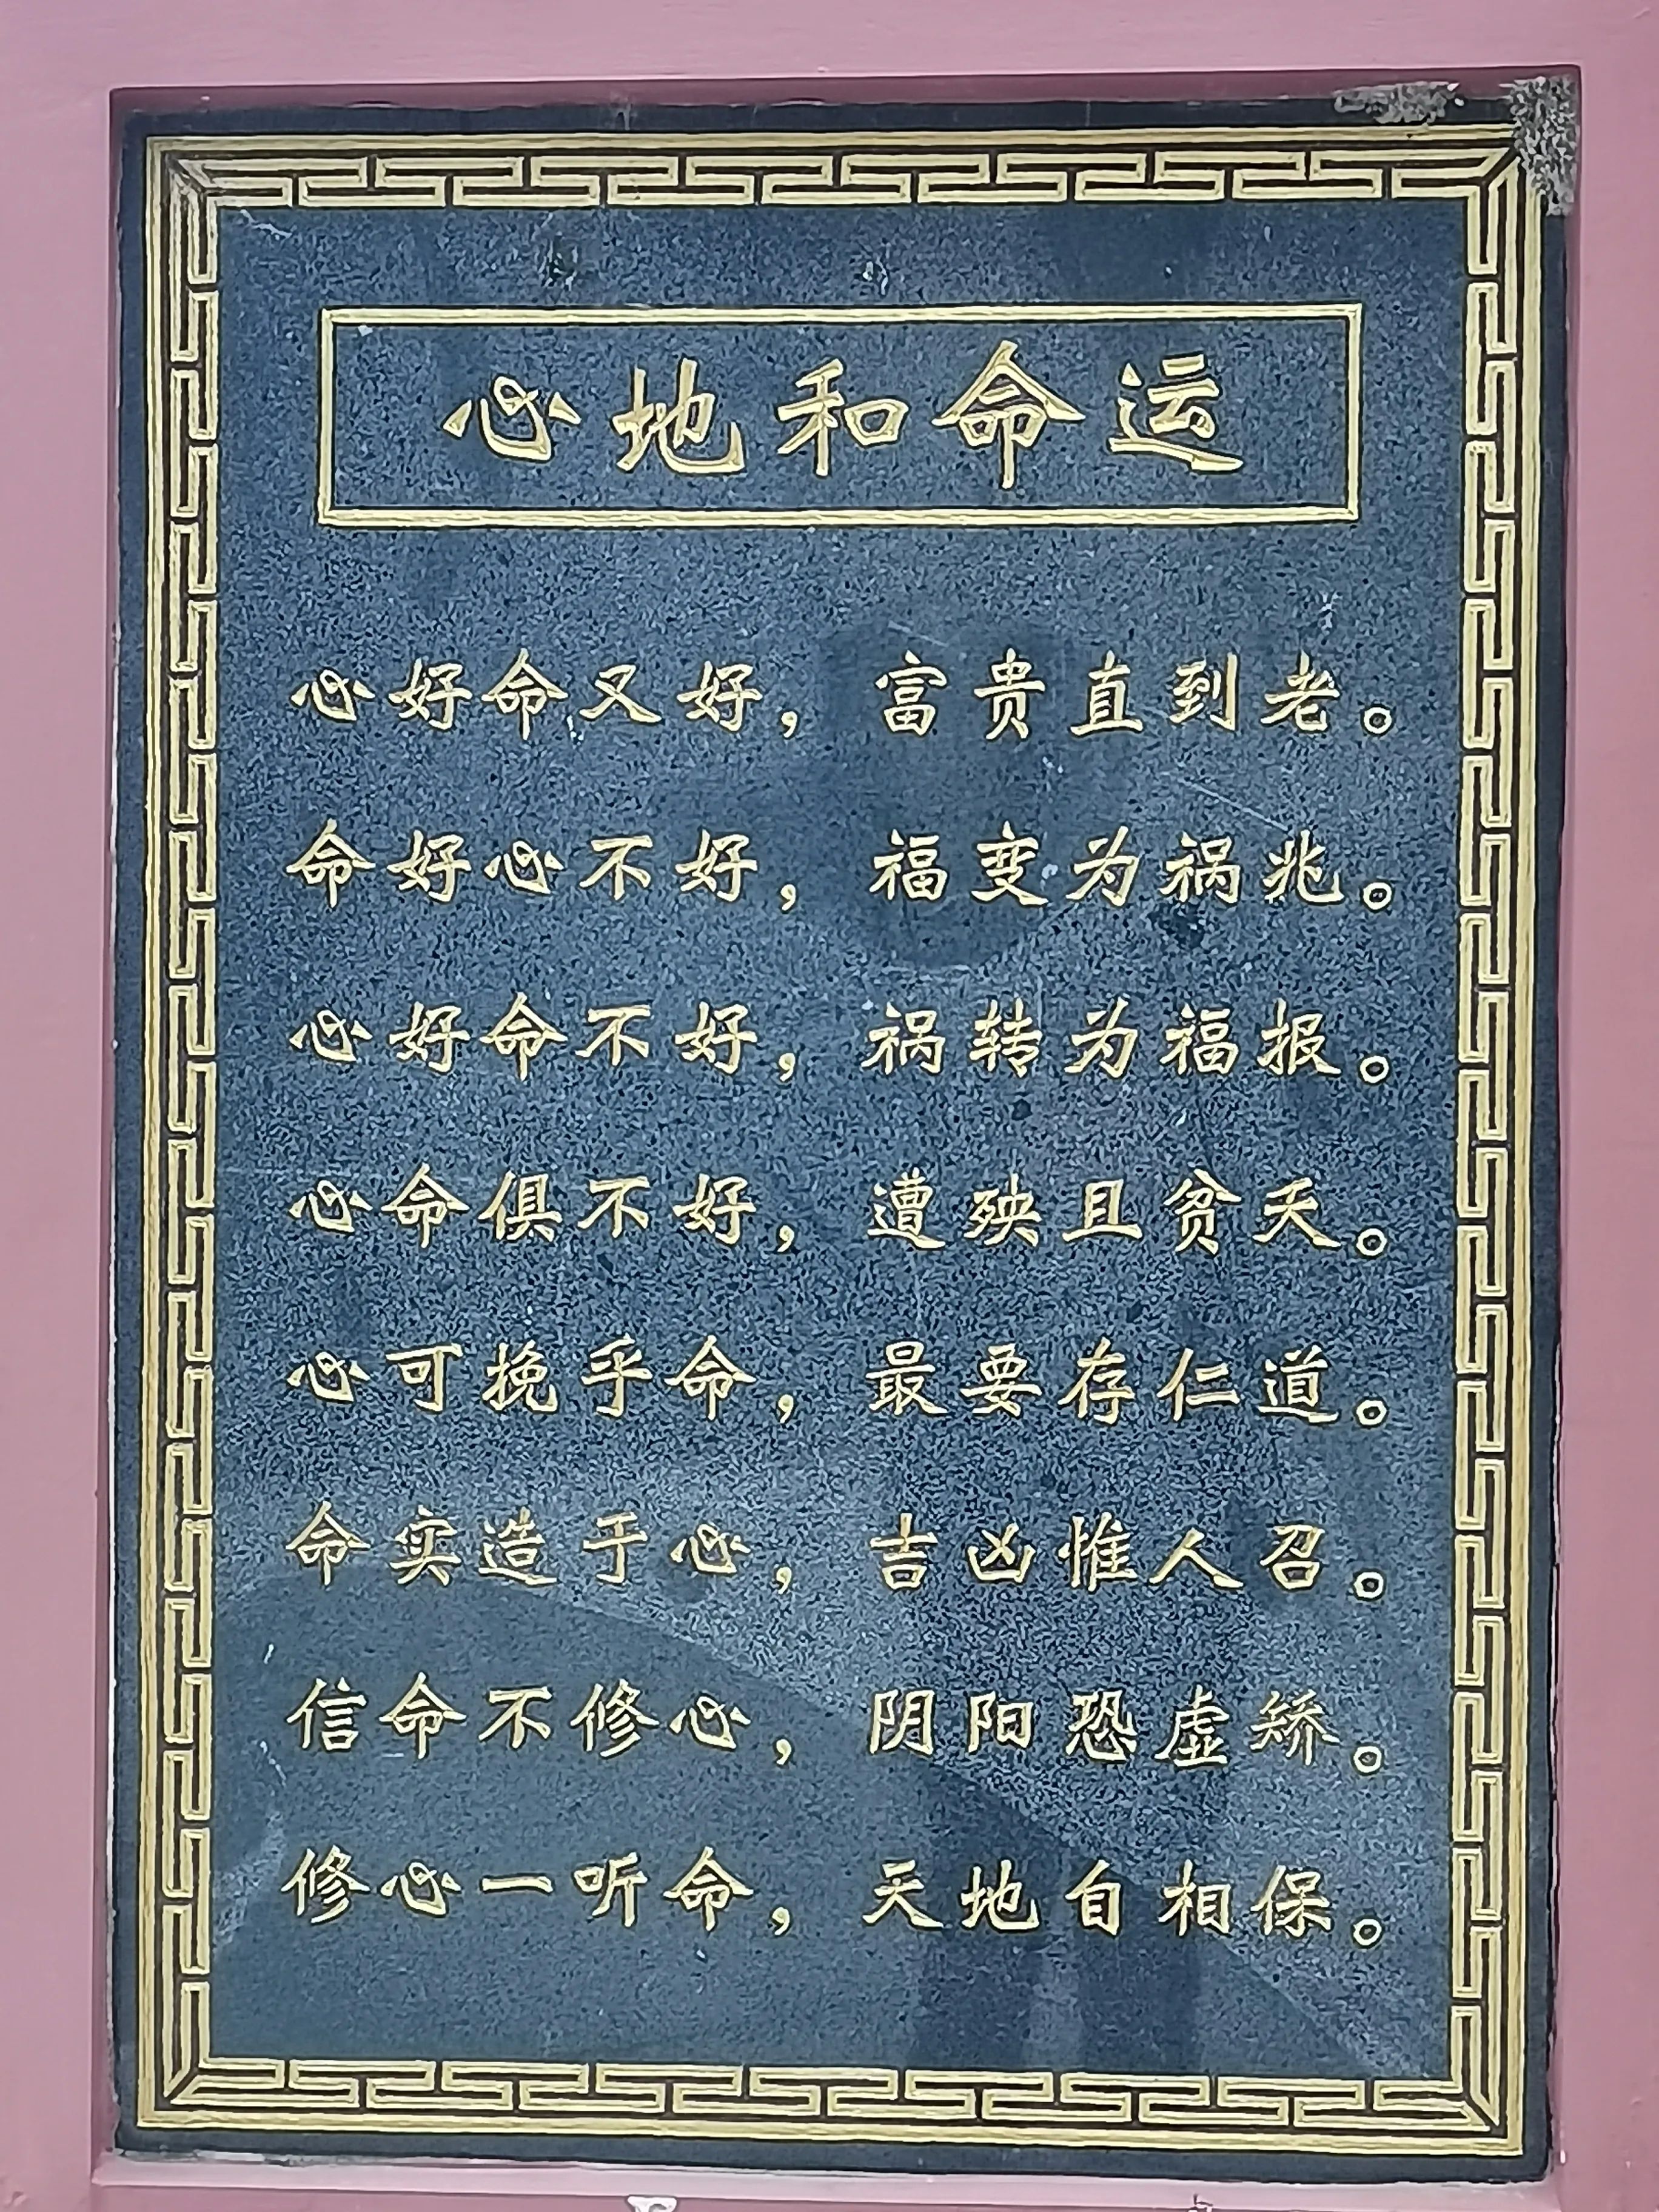 心地和命运
心好命又好，富贵直到老。
命好心不好，福变为祸兆。
心好命不好，祸转为福报。
心命俱不好，遭殃且贫夭。
心可挽乎命，最要存仁道。
命实造于心，吉凶惟人召。
信命不修心，阴阳恐虚矫。
修心一听命，天地自相保。